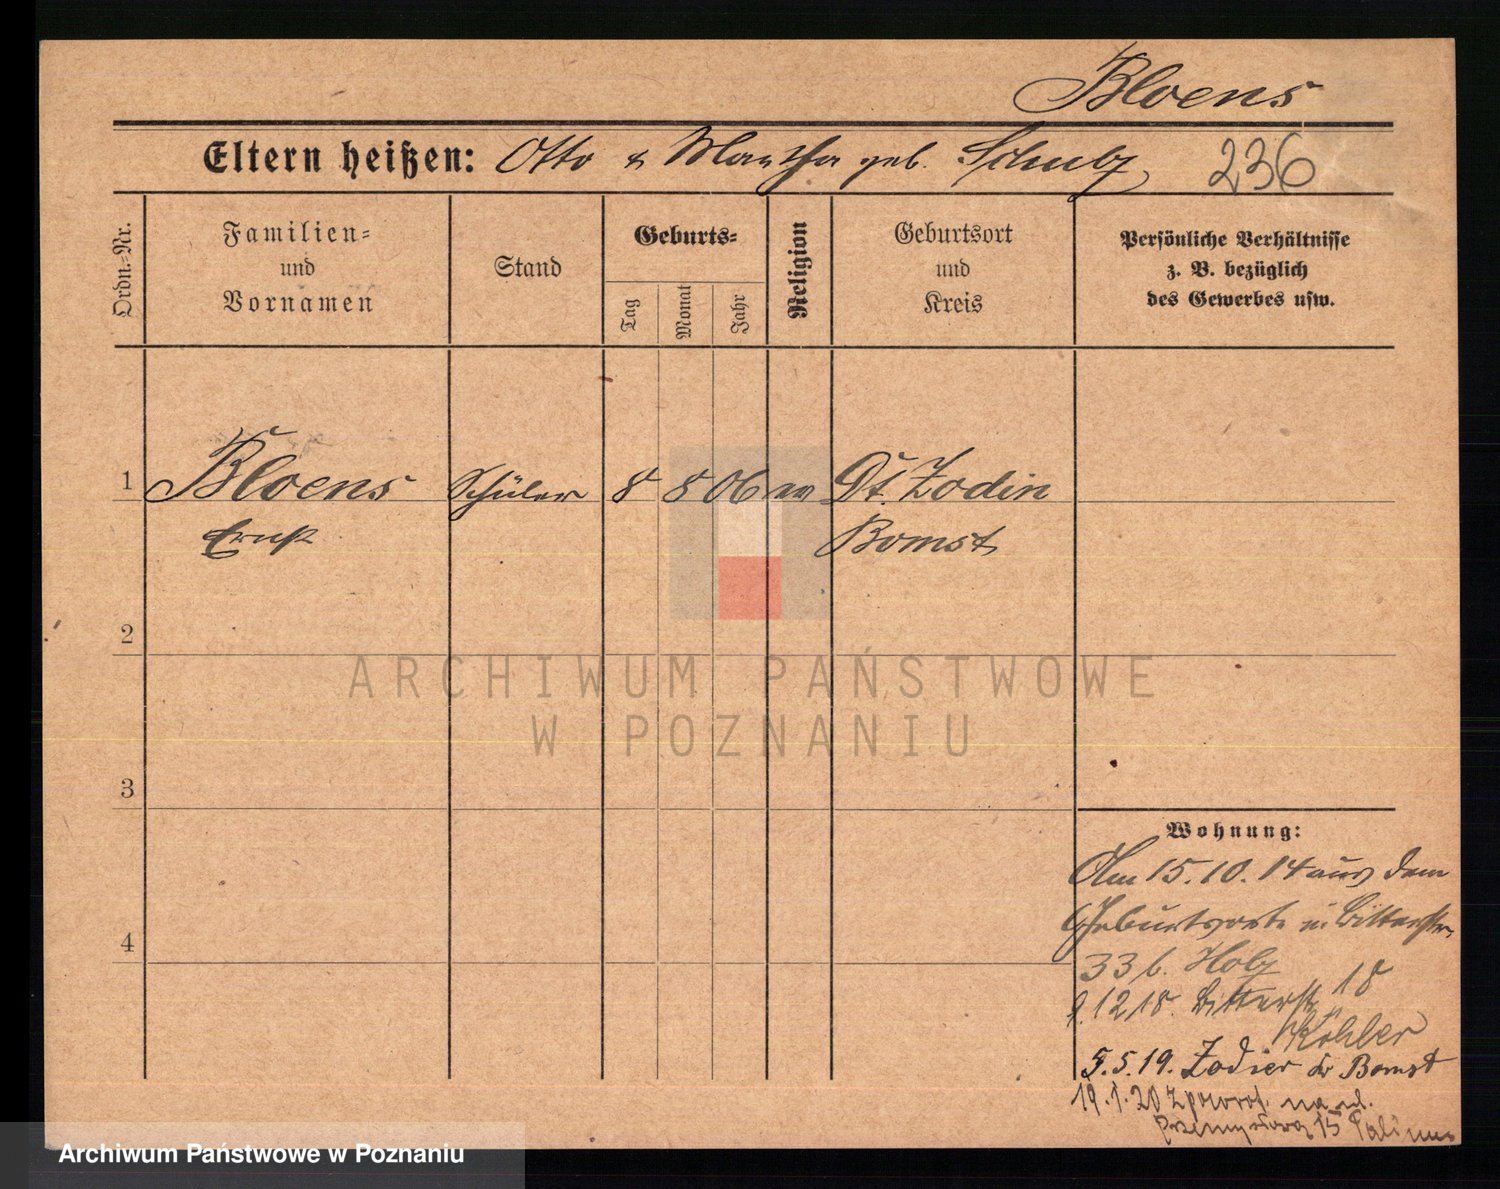 Bloens
Eltern heißen: Otto & Martha geb. Schulz 236
Ordn.-Nr.
Familien-
und
Vornamen
Stand
Geburts-
Tag
Monat
Jahr
Religion
Geburtsort
und
Kreis
Persönliche Verhältnisse
z. B. bezüglich
des Gewerbes usw.
1 Bloens Schüler 8 8 06 ev Dt. Zodin
Ernst Bomst
2
3
4
ARCHIWUM PAŃSTWOWE
W POZNANIU
Wohnung:
Am 15.10.14 aus dem
Geburtsorte n. Bitterstr.
33 b. Holz
9.12 18. Bitterstr. 18
Köhler
5.5.19. Zodier Kr Bomst
19.1.20 z powrot. na ul.
Przemysłową 15
Archiwum Państwowe w Poznaniu